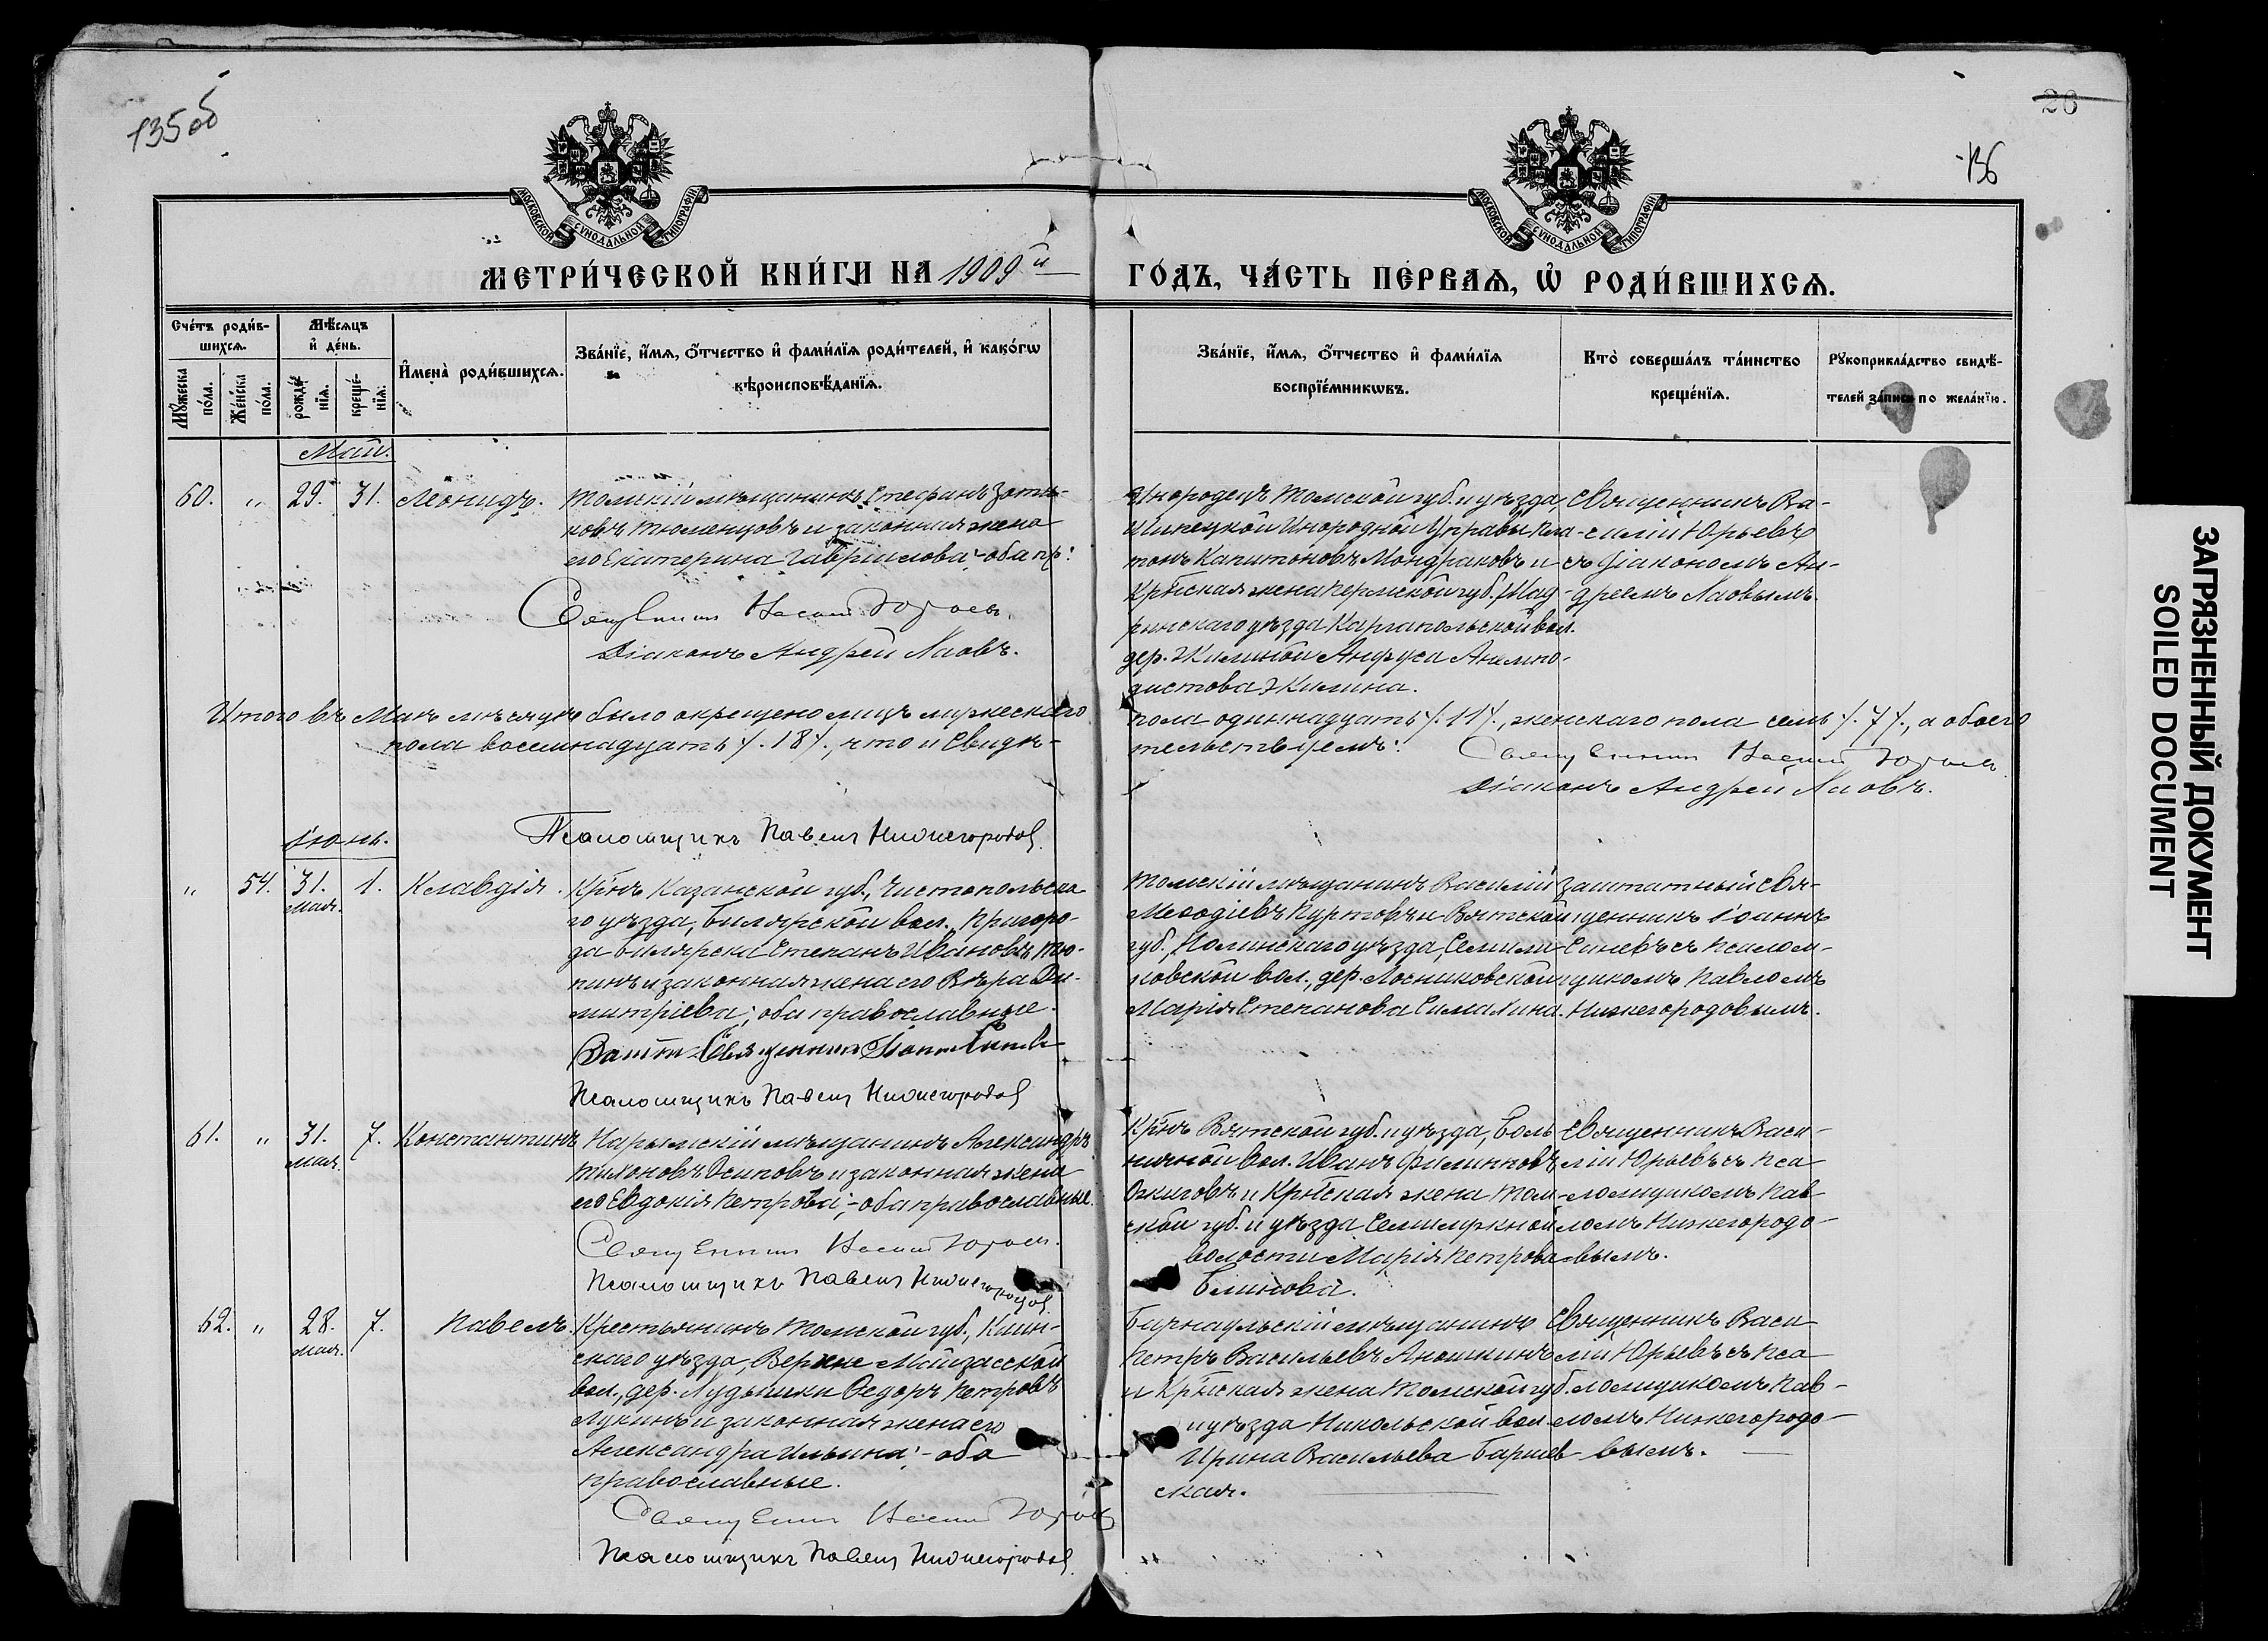 135 об
26
136
МОСКОВСКОЙ СѴНОДАЛЬНОЙ ТИПОГРАФІИ
МОСКОВСКОЙ СѴНОДАЛЬНОЙ ТИПОГРАФІИ
МЕТРИ́ЧЕСКОЙ КНИ́ГИ НА 1909й
ГО́ДЪ, ЧА́СТЬ ПЕ́РВАѦ, Ѡ҆ РОДИ́ВШИХСѦ.
Сче́тъ роди́в-
шихсѧ.
Мꙋ́жеска по́ла.
Же́нска по́ла.
Мѣ́сѧцъ
и҆ де́нь.
рожде́-
нїѧ.
креще́-
нїѧ.
И҆мена̀ роди́вшихсѧ.
Зва́нїе, и҆́мѧ, ѻ҆́тчество и҆ фами́лїѧ роди́телей, и҆ како́гѡ
вѣроисповѣ́данїѧ.
Зва́нїе, и҆́мѧ, ѻ҆́тчество и҆ фами́лїѧ
воспрїе́мникѡвъ.
Кто̀ соверша́лъ та́инство
креще́нїѧ.
Рꙋкоприкла́дство свидѣ́-
телей за́писи по жела́нїю.
Май.
60. " 29. 31. Леонидъ.
Томскій мѣщанинъ Стефанъ Зоти-
ковъ Тюменцовъ и законная жена
его Екатерина Гавріилова; - оба пр:
Священникъ Василій Юрьевъ.
Діаконъ Андрей Лаовъ.
Инородецъ Томской губ. и уѣзда,
Инородной Управы Пла-
тонъ Капитоновъ Мондраковъ и
Кр҃нская жена Пермской губ., Шад-
ринскаго уѣзда Каргапольской вол.
дер. Жилиной Анфуса Анемпо-
дистова Жилина.
Священникъ Ва-
силій Юрьевъ
съ Діакономъ Ан-
дреемъ Лаовымъ.
Итого въ Маѣ мѣсяцѣ было окрещено лицъ мужескаго
пола одиннадцать /. 11 /., женскаго пола семь /. 7 /., а обоего
пола восемнадцать /. 18 /., что и свидѣ-
тельствуемъ:
Священникъ Василій Юрьевъ.
Діаконъ Андрей Лаовъ.
Псаломщикъ Павелъ Нижегородов.
Іюнь.
" 54. 31. Мая. 1. Клавдія.
Кр҃нъ Казанской губ., Чистопольска-
го уѣзда, Билярской вол., Пригоро-
да Билярска Степанъ Ивановъ Тю-
пинъ и законная жена его Вѣра Ди-
митріева; оба православные.
Зашт. Священникъ Іоаннъ Синевъ
Псаломщикъ Павелъ Нижегородов
Томскій мѣщанинъ Василій
Меѳодіевъ Куртовъ и Вятской
губ., Нолинскаго уѣзда,
вол., дер. Лосниковской
Марія Степанова Симахина.
Заштатный свя-
щенникъ Іоаннъ
Синевъ съ псалом-
щикомъ Павломъ
Нижегородовымъ.
61. " 31. Мая. 7. Константинъ
Нарымскій мѣщанинъ Александръ
Тихоновъ Осиповъ и законная жена
его Евдокія Петрова; - оба православные.
Священникъ Василій Юрьевъ.
Псаломщикъ Павелъ Нижегородов.
Кр҃нъ Вятской губ. и уѣзда,
вол. Иванъ Филипповъ
Ожиговъ и Кр҃нская жена Том-
ской губ. и уѣзда Семилужной
волости Марія Петрова
Блинова.
Священникъ Васи-
лій Юрьевъ съ пса
ломщикомъ Пав-
ломъ Нижегородо-
вымъ.
62. " 28. Мая. 7. Павелъ.
Крестьянинъ Томской губ., Каин-
скаго уѣзда, Верхне Майзасской
вол., дер. Ѳедоръ Петровъ
Лукинъ и законная жена его
Александра Ильина; - оба
православные.
Священникъ Василій Юрьевъ
Псаломщикъ Павелъ Нижегородов.
Барнаульскій мѣщанинъ
Петръ Васильевъ Аношкинъ
и Кр҃нская жена Томской губ.
и уѣзда Никольской вол.
Ирина Васильева Баршев-
ская.
Священникъ Васи
лій Юрьевъ съ пса
ломщикомъ Пав-
ломъ Нижегородо-
вымъ.
ЗАГРЯЗНЕННЫЙ ДОКУМЕНТ
SOILED DOCUMENT